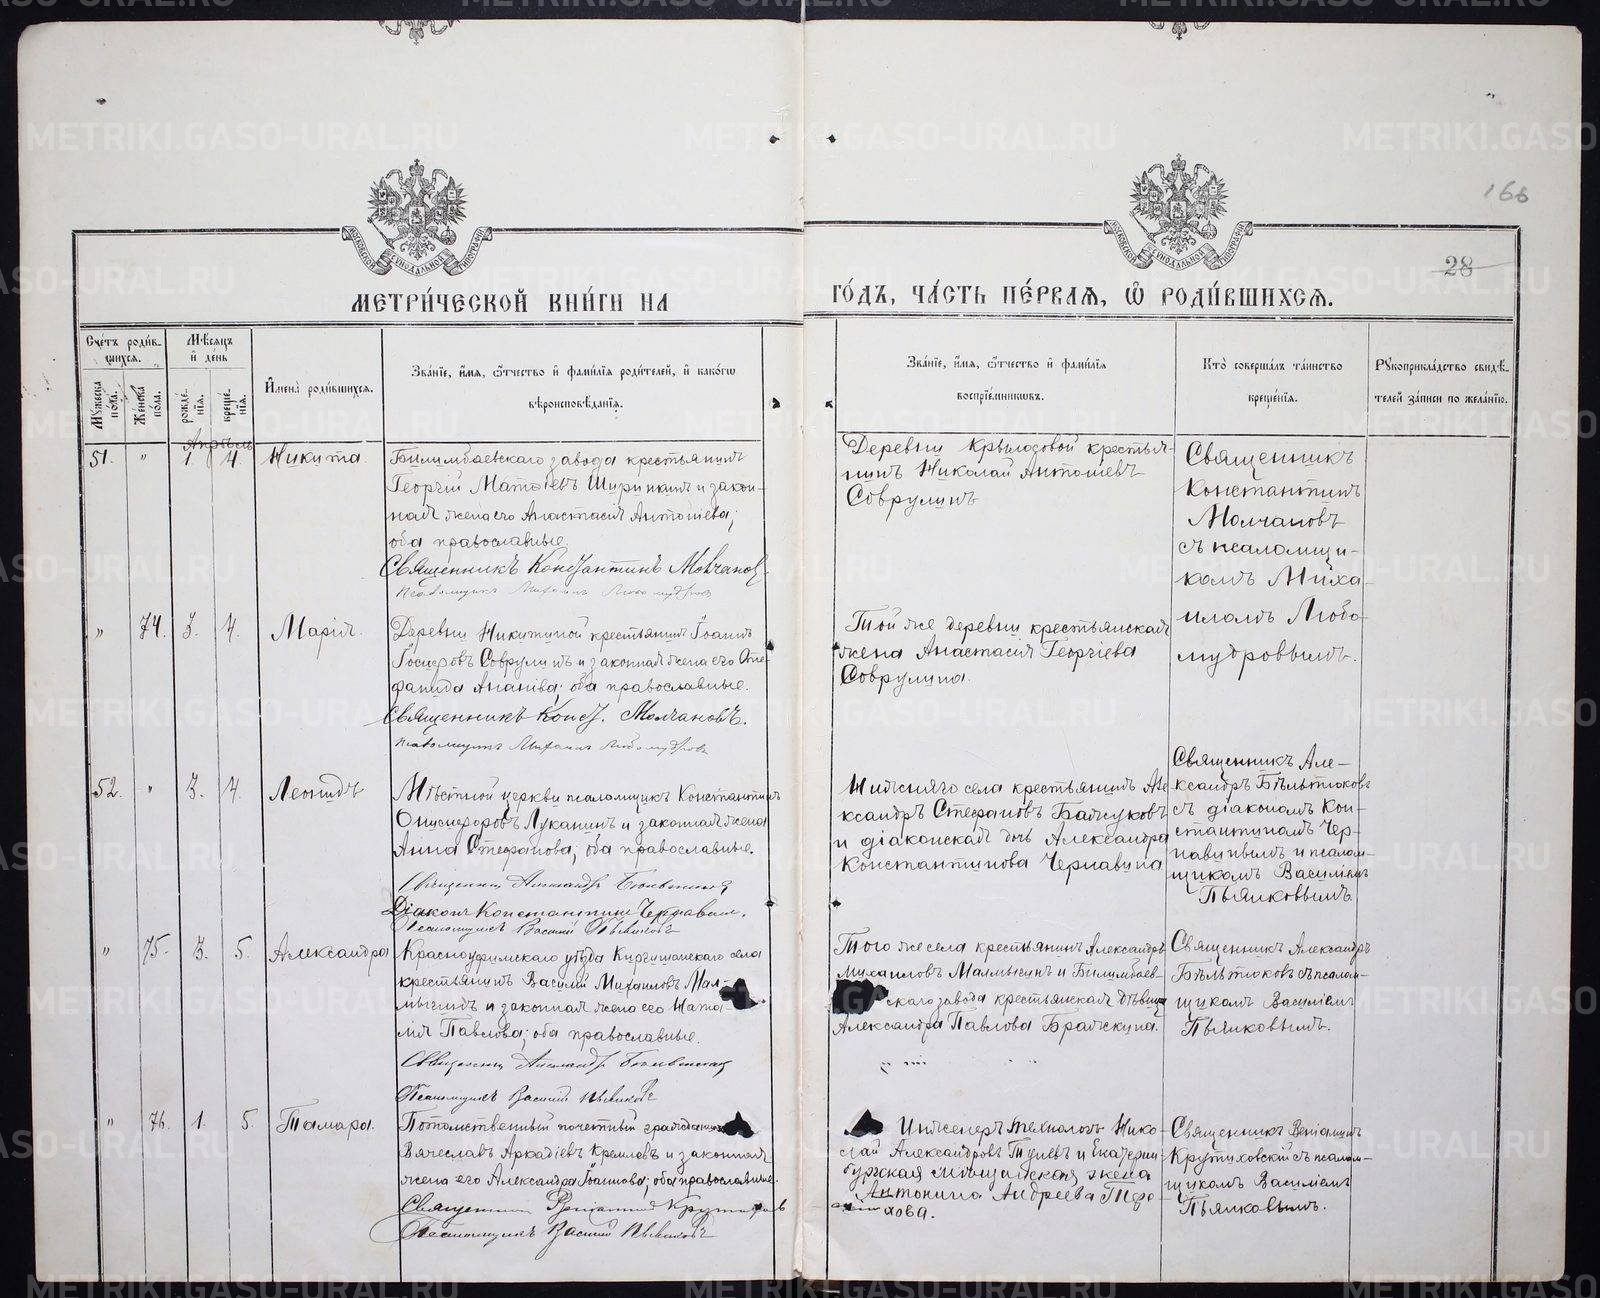 166
28
МЕТРИЧЕСКОЙ КНИГИ НА ГОДЪ, ЧАСТЬ ПЕРВАЯ, Ѿ РОДИВШИХСЯ.
Счетъ родив-
шихся.
Мужеска пола.
Женска пола.
Мѣсяцъ и день
рожде-
нія.
креще-
нія.
Имена родившихся.
Званіе, имя, ѿтчество и фамилія родителей, и какогѡ
вѣроисповѣданія.
Званіе, имя, ѿтчество и фамилія
воспріемниковъ.
Кто совершалъ таинство
крещенія.
Рукоприкладство свидѣ-
телей записи по желанію.
Апрѣль
51. " 1. 4. Никита
Билимбаевскаго завода крестьянинъ
Георгій Матѳіевъ Ширинкинъ и закон-
ная жена его Анастасія Антоніева;
оба православные.
Священникъ Константинъ Молчановъ
Псаломщикъ Михаилъ Любомудровъ
Деревни Крылосовой крестья-
нинъ Николай Антоніевъ
Соврулинъ
Священникъ
Константинъ
Молчановъ
съ псаломщи-
комъ Миха-
иломъ Любо-
мудровымъ.
" 74. 3. 4. Марія.
Деревни Никитиной крестьянинъ Іоаннъ
Соврулинъ и законная жена его Сте-
фанида Ананіева; оба православные.
Священникъ Конст. Молчановъ.
Псаломщикъ Михаилъ Любомудровъ
Той же деревни крестьянская
жена Анастасія Георгіева
Соврулина.
52. " 3. 4. Леонидъ
Мѣстной церкви псаломщикъ Константинъ
Онисифоровъ Луканинъ и законная жена
Анна Стефанова; оба православные.
Священникъ Александръ Бѣльтюковъ
Діаконъ Константинъ Чернавинъ.
Псаломщикъ Василій Пьянковъ
села крестьянинъ Але-
ксандръ Стефановъ Балчуковъ
и діаконская дочь Александра
Константинова Чернавина
Священникъ Але-
ксандръ Бѣльтюковъ
съ діакономъ Кон-
стантиномъ Чер-
навинымъ и псалом-
щикомъ Василіемъ
Пьянковымъ.
" 75. 3. 5. Александра
Красноуфимскаго уѣзда Киргишанскаго села
крестьянинъ Василій Михаиловъ Мал-
мыгинъ и законная жена его Ната-
лія Павлова; оба православные.
Священникъ Александръ Бѣльтюковъ
Псаломщикъ Василій Пьянковъ
Того же села крестьянинъ Александръ
Михаиловъ Малмыгинъ и Билимбаев-
скаго завода крестьянская дѣвица
Александра Павлова
Священникъ Александръ
Бѣльтюковъ съ псалом-
щикомъ Василіемъ
Пьянковымъ.
" 76. 1. 5. Тамара.
Потомственный почетный гражданинъ
Вячеславъ Аркадіевъ и законная
жена его Александра Іоаннова; оба православные.
Священникъ Веніаминъ
Псаломщикъ Василій Пьянковъ
Инженеръ технологъ Нико-
лай Александровъ и Екатерин-
бургская мѣщанская жена
Антонина Андреева Тере-
хова.
Священникъ Веніаминъ
Крутиховскій съ псалом-
щикомъ Василіемъ
Пьянковымъ.
METRIKI.GASO-URAL.RU